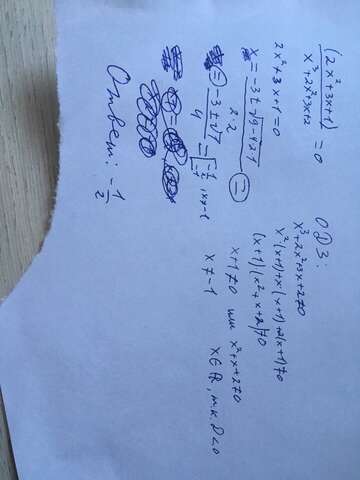 (2x²+3x+1)
x³+2x²+3x+2 =0
2x²+3x+1=0
x= -3±√9-4·2·1
2·2
= -3±√1
4 = [-1/2
-1 , x≠-1
Ответ: -1/2
ОДЗ:
x³+2x²+3x+2≠0
x²(x+1)+x(x+1)+2(x+1)≠0
(x+1)(x²+x+2)≠0
x+1≠0 или x²+x+2≠0
x≠-1 x∈R, т.к. D<0